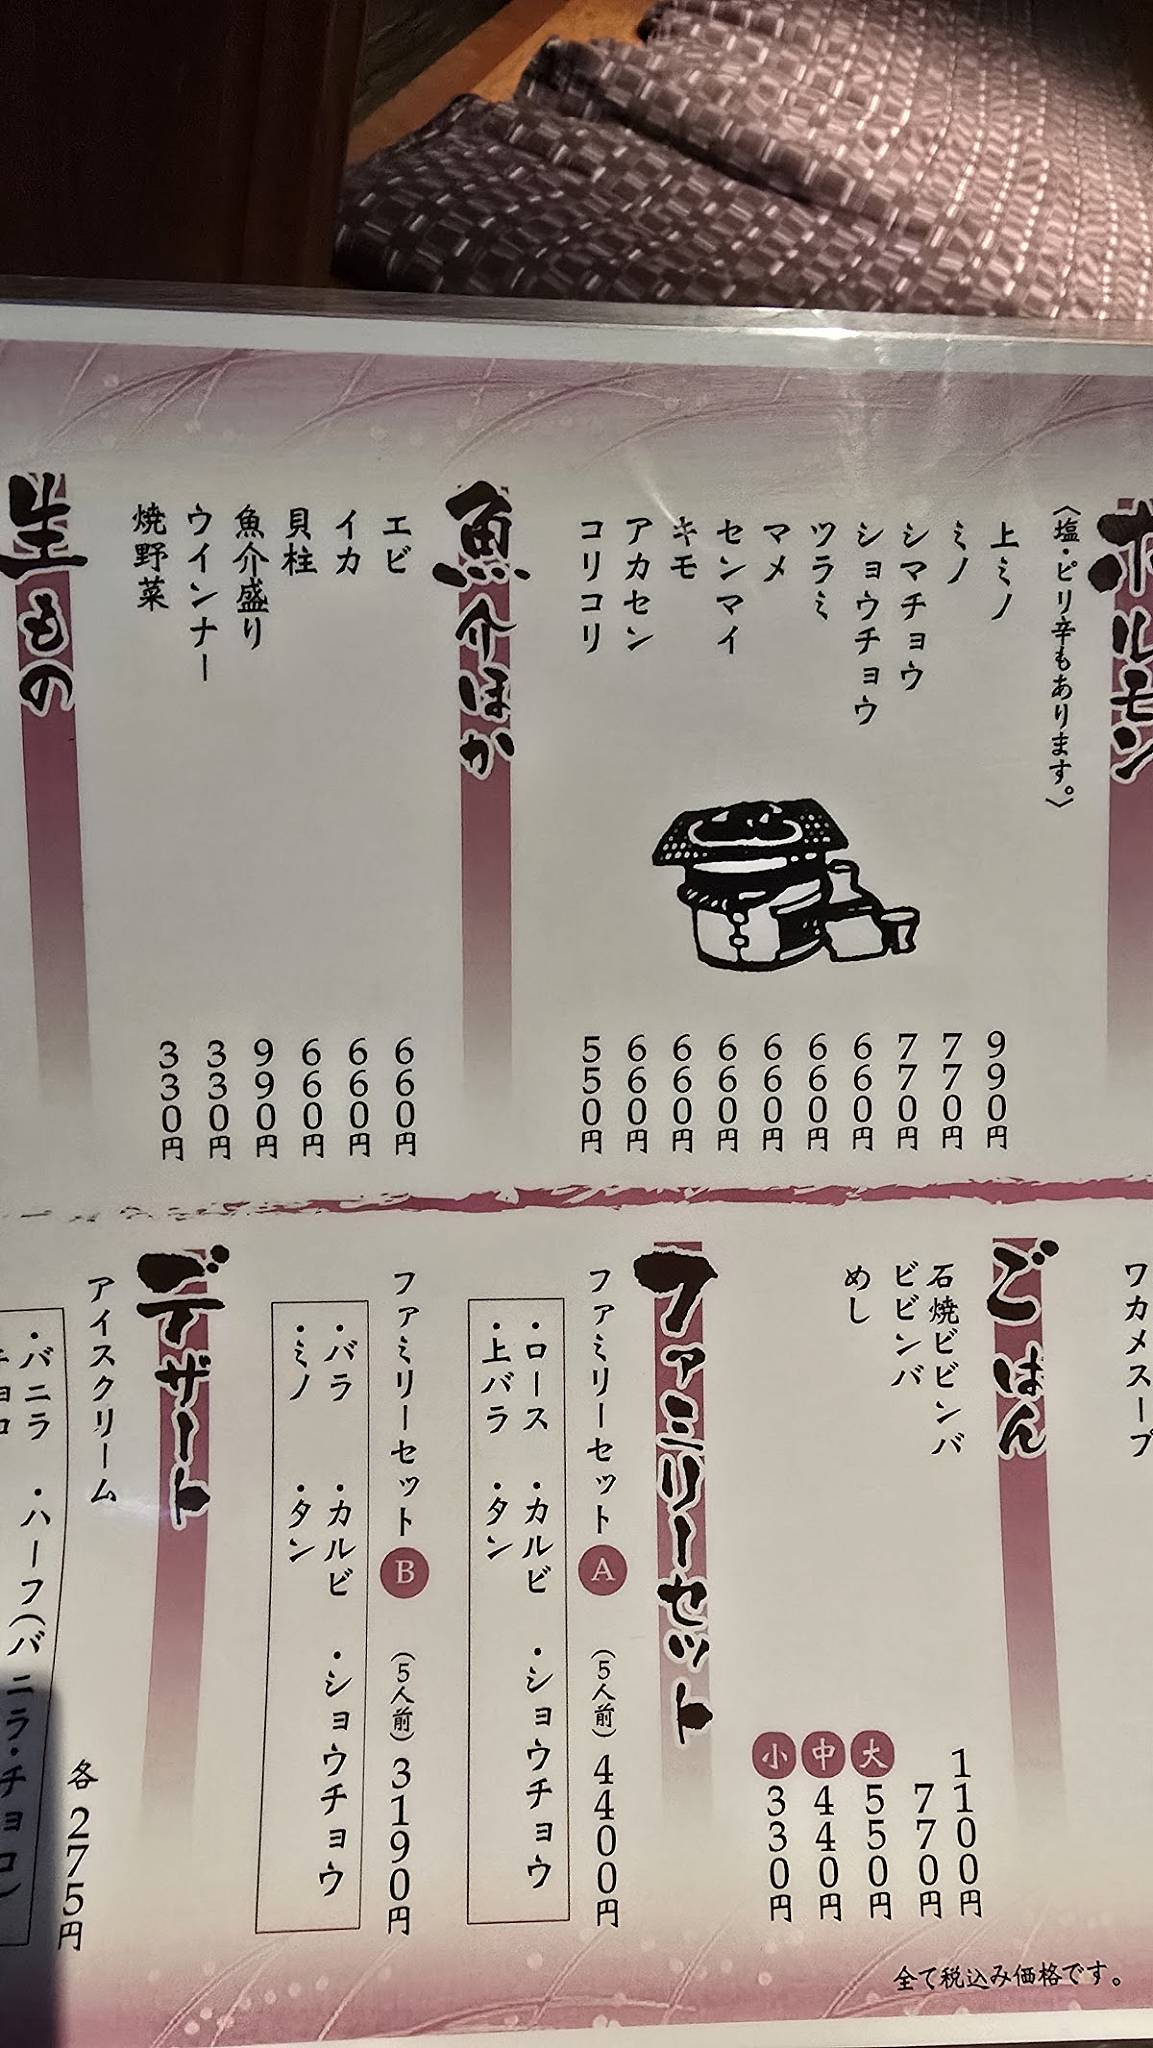 ホルモン
〈塩・ピリ辛もあります。〉
上ミノ 990円
ミノ 770円
シマチョウ 770円
ショウチョウ 660円
ツラミ 660円
マメ 660円
センマイ 660円
キモ 660円
アカセン 660円
コリコリ 550円
魚介ほか
エビ 660円
イカ 660円
貝柱 660円
魚介盛り 990円
ウインナー 330円
焼野菜 330円
生もの
ワカメスープ
ごはん
石焼ビビンバ 1100円
ビビンバ 770円
めし 大 550円
中 440円
小 330円
ファミリーセット
ファミリーセット A (5人前) 4400円
・ロース ・カルビ ・ショウチョウ
・上バラ ・タン
ファミリーセット B (5人前) 3190円
・バラ ・カルビ ・ショウチョウ
・ミノ ・タン
デザート
アイスクリーム 各 275円
・バニラ ・ハーフ(バニラ・チョコ)
全て税込み価格です。